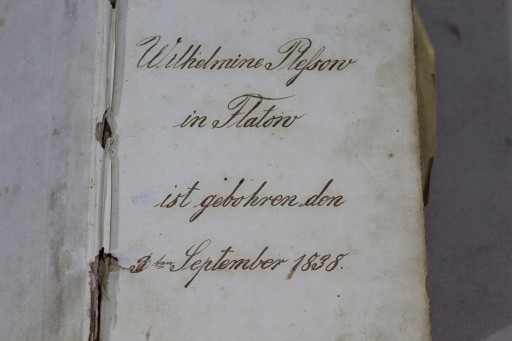 Wilhelmine Pleſsow
in Flatow
ist gebohren den
3ten September 1838.